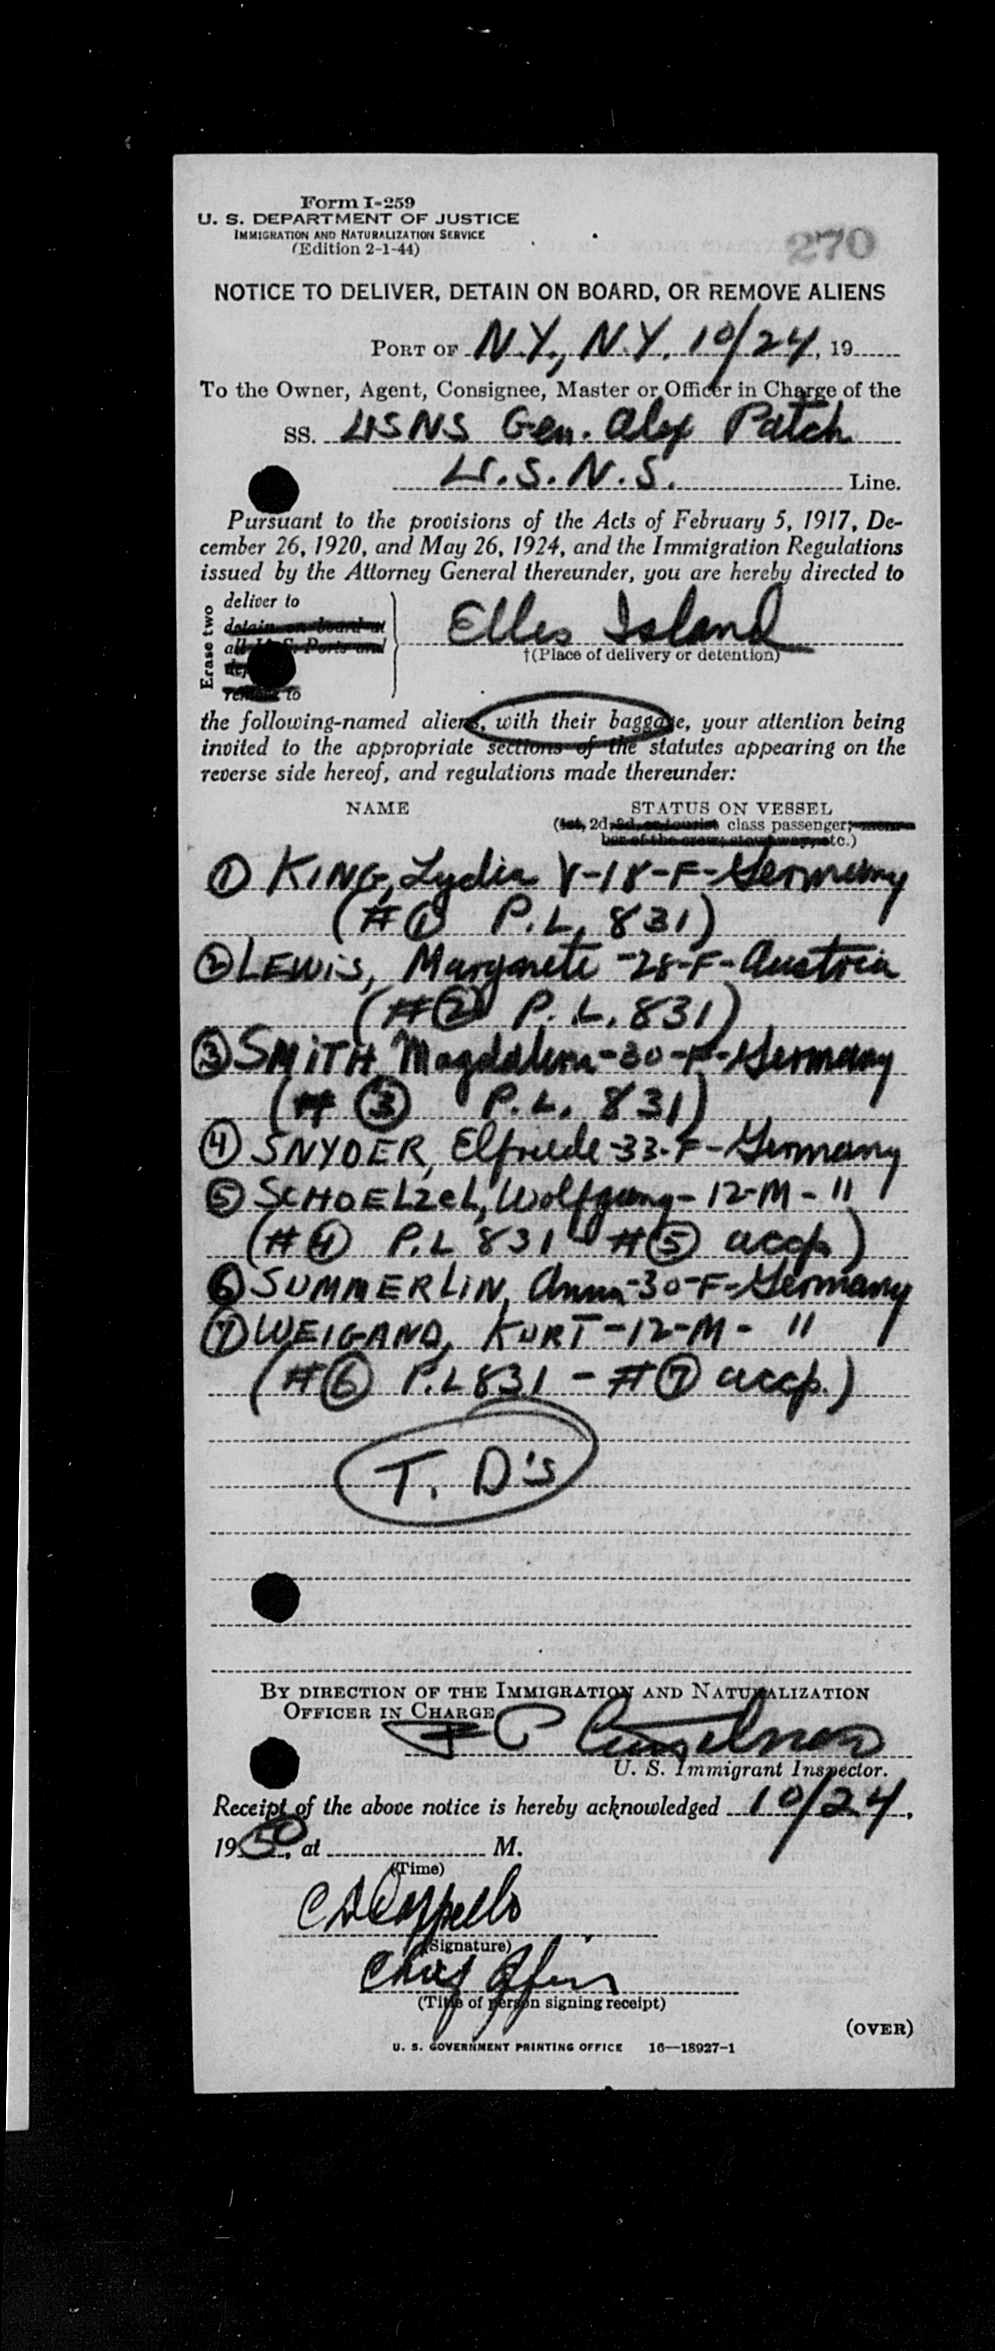 Form I-259
U. S. DEPARTMENT OF JUSTICE
IMMIGRATION AND NATURALIZATION SERVICE
(Edition 2-1-44)
270
NOTICE TO DELIVER, DETAIN ON BOARD, OR REMOVE ALIENS
PORT OF N.Y., N.Y. 10/24, 19
To the Owner, Agent, Consignee, Master or Officer in Charge of the
SS. USNS Gen. Alex Patch
U.S.N.S. Line.
Pursuant to the provisions of the Acts of February 5, 1917, De-
cember 26, 1920, and May 26, 1924, and the Immigration Regulations
issued by the Attorney General thereunder, you are hereby directed to
Erase two
deliver to
detain on board at
all U. S. Ports and
remove to
Ellis Island
†(Place of delivery or detention)
the following-named aliens, with their baggage, your attention being
invited to the appropriate sections of the statutes appearing on the
reverse side hereof, and regulations made thereunder:
NAME STATUS ON VESSEL
(1st, 2d, 3d, or tourist class passenger; mem-
ber of the crew; stowaway, etc.)
① KING, Lydia Y-18-F-Germany
(#① P.L. 831)
② LEWIS, Margarete -28-F-Austria
(#② P.L. 831)
③ SMITH Magdalena-30-F-Germany
(# ③ P.L. 831)
④ SNYDER, Elfriede-33-F-Germany
⑤ SCHOELZEL, Wolfgang-12-M-"
(#④ P.L 831 #⑤ accp.)
⑥ SUMMERLIN, Anna-30-F-Germany
⑦ WEIGAND, KURT-12-M- "
(#⑥ P.L 831 - #⑦ accp.)
T. D's
BY DIRECTION OF THE IMMIGRATION AND NATURALIZATION
OFFICER IN CHARGE
U. S. Immigrant Inspector.
Receipt of the above notice is hereby acknowledged 10/24,
1950, at M.
(Time)
(Signature)
Chief Officer
(Title of person signing receipt)
(OVER)
U. S. GOVERNMENT PRINTING OFFICE 16—18927-1